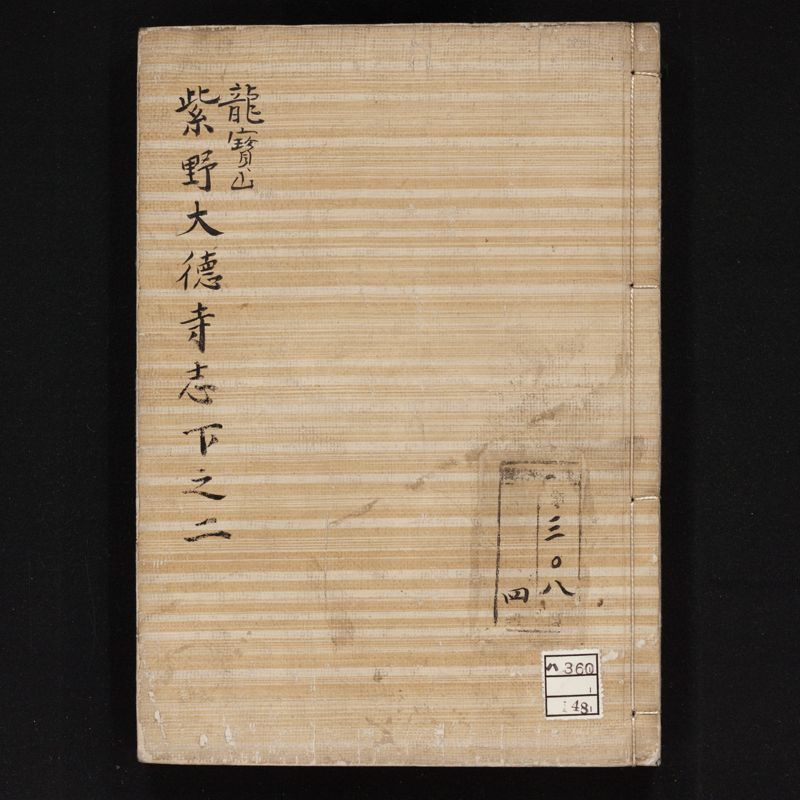 龍寶山
紫野大德寺志下之二
三〇八
四
ハ 360
1
48